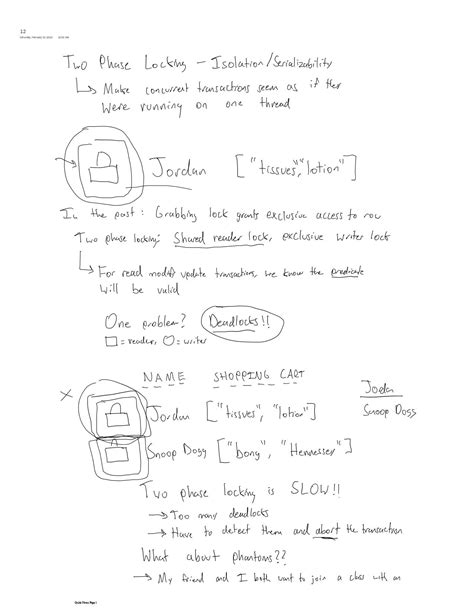 12
Two Phase Locking - Isolation/Serializability
↳ Make concurrent transactions seem as if they
were running on one thread
Jordan ["tissues", "lotion"]
In the past: Grabbing lock grants exclusive access to row
Two phase locking: Shared reader lock, exclusive writer lock
↳ For read modify update transactions, we know the predicate
will be valid
One problem? Deadlocks!!
□ = reader, ○ = writer
NAME SHOPPING CART
X
Jordan ["tissues", "lotion"]
Snoop Dogg ["bong", "Hennessey"]
Jordan
Snoop Dogg
Two phase locking is SLOW!!
→ Too many deadlocks
→ Have to detect them and abort the transaction
What about phantoms??
→ My friend and I both want to join a class with an